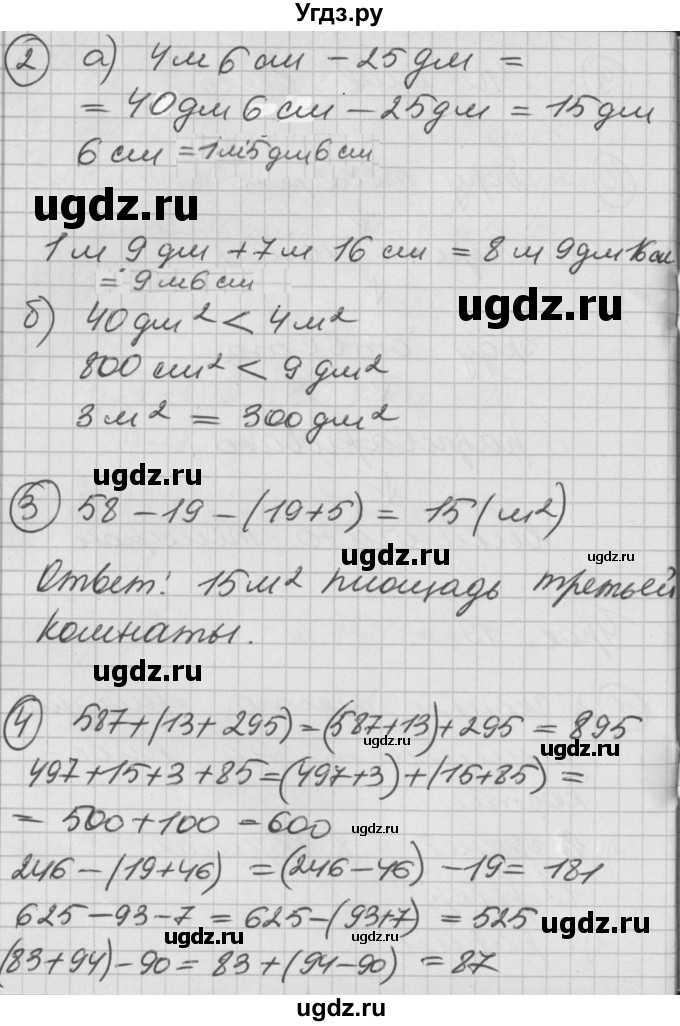 Угдз.ру
2 а) 4 м 6 см – 25 дм =
= 40 дм 6 см – 25 дм = 15 дм
6 см = 1 м 5 дм 6 см
ugdz.ru
1 м 9 дм + 7 м 16 см = 8 м 9 дм 16 см
= 9 м 6 см
ugdz.ru
б) 40 дм² < 4 м²
800 см² < 9 дм²
3 м² = 300 дм²
ugdz.ru
3 58 – 19 – (19+5) = 15 (м²)
ugdz.ru ugdz.ru
Ответ: 15 м² площадь третьей
комнаты.
ugdz.ru
4 587+(13+295)=(587+13)+295 = 895
ugdz.ru ugdz.ru
497+15+3+85=(497+3)+(15+85) =
= 500+100 = 600
ugdz.ru
246 – (19+46) = (246–46) – 19 = 181
625 – 93 – 7 = 625 – (93+7) = 525
ugdz.ru ugdz.ru
(83+94) – 90 = 83 + (94–90) = 87
ugdz.ru